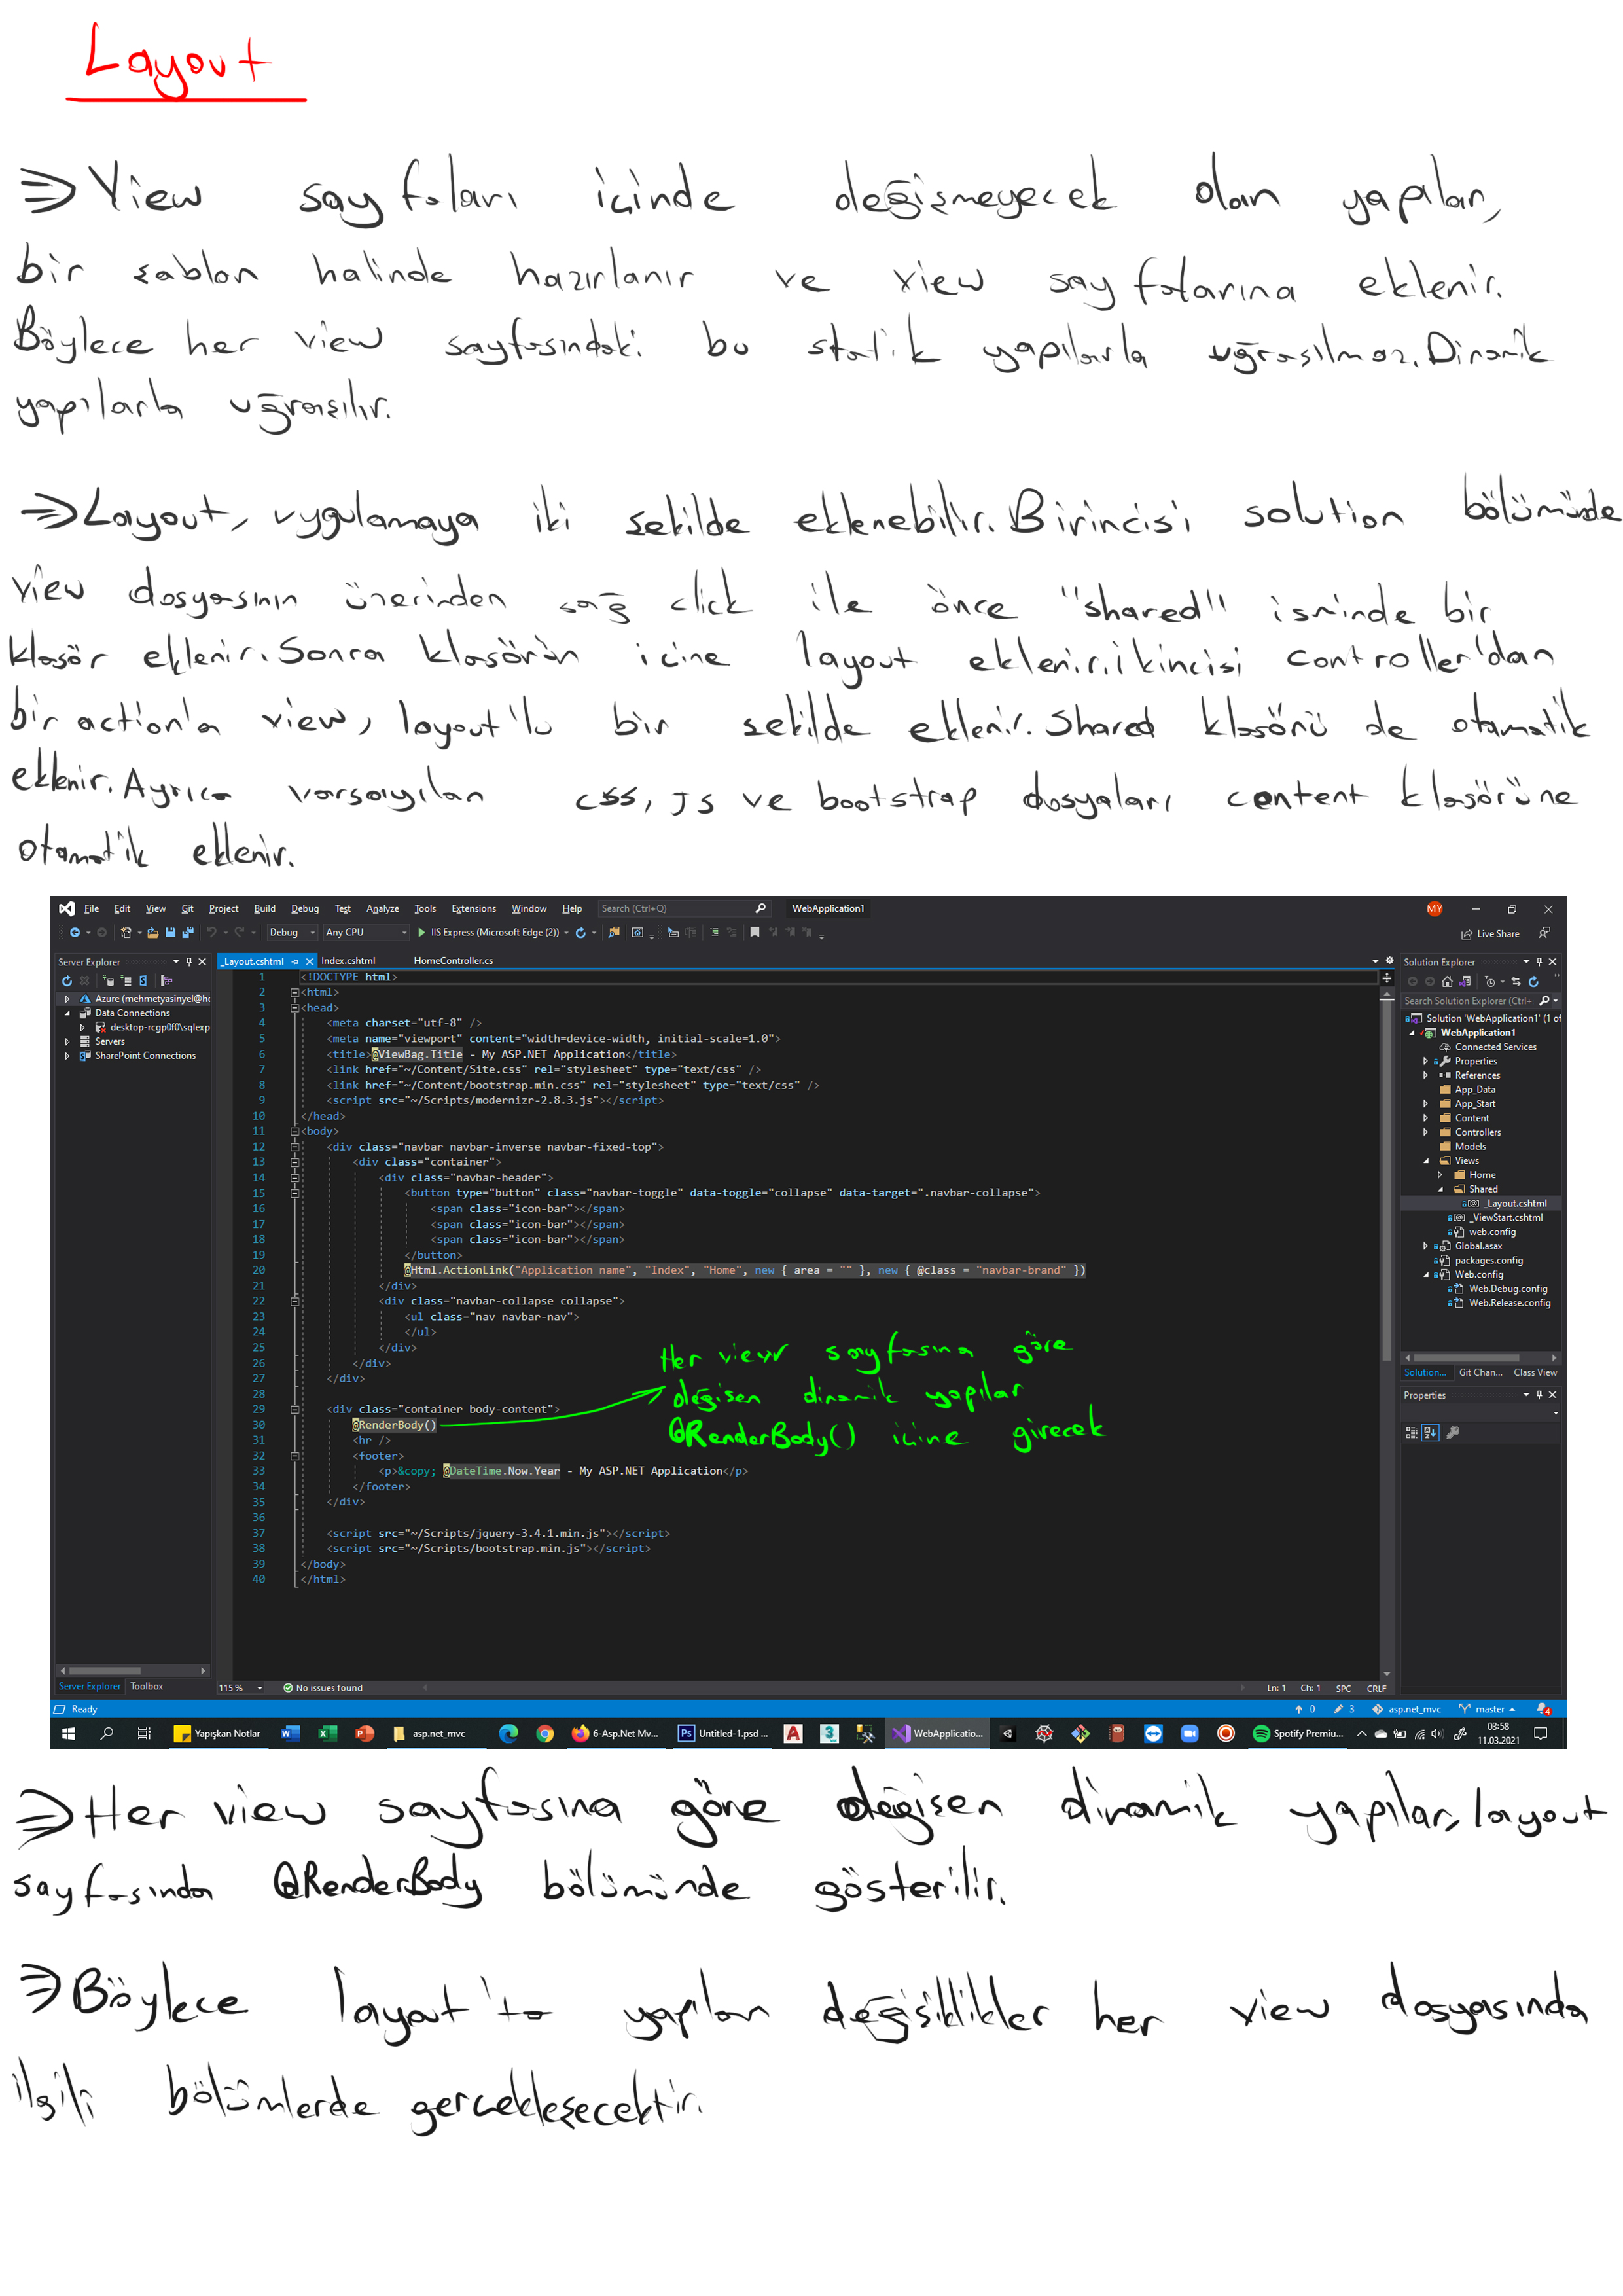 Layout
⇒ View sayfaları içinde değişmeyecek olan yapılar,
bir şablon halinde hazırlanır ve view sayfalarına eklenir.
Böylece her view sayfasındaki bu statik yapılarla uğraşılmaz. Dinamik
yapılarla uğraşılır.
⇒ Layout, uygulamaya iki şekilde eklenebilir. Birincisi solution bölümünde
view dosyasının üzerinden sağ click ile önce "shared" isminde bir
klasör eklenir. Sonra klasörün içine layout eklenir. İkincisi controller'dan
bir action'a view, layout'lu bir şekilde eklenir. Shared klasörü de otamatik
eklenir. Ayrıca varsayılan css, js ve bootstrap dosyaları content klasörüne
otamatik eklenir.
File Edit View Git Project Build Debug Test Analyze Tools Extensions Window Help Search (Ctrl+Q) WebApplication1 MY
Debug Any CPU IIS Express (Microsoft Edge (2)) Live Share
Server Explorer
Azure (mehmetyasinyel@ho
Data Connections
desktop-rcgp0f0\sqlexp
Servers
SharePoint Connections
Server Explorer Toolbox
_Layout.cshtml Index.cshtml HomeController.cs
1 <!DOCTYPE html>
2 <html>
3 <head>
4 <meta charset="utf-8" />
5 <meta name="viewport" content="width=device-width, initial-scale=1.0">
6 <title>@ViewBag.Title - My ASP.NET Application</title>
7 <link href="~/Content/Site.css" rel="stylesheet" type="text/css" />
8 <link href="~/Content/bootstrap.min.css" rel="stylesheet" type="text/css" />
9 <script src="~/Scripts/modernizr-2.8.3.js"></script>
10 </head>
11 <body>
12 <div class="navbar navbar-inverse navbar-fixed-top">
13 <div class="container">
14 <div class="navbar-header">
15 <button type="button" class="navbar-toggle" data-toggle="collapse" data-target=".navbar-collapse">
16 <span class="icon-bar"></span>
17 <span class="icon-bar"></span>
18 <span class="icon-bar"></span>
19 </button>
20 @Html.ActionLink("Application name", "Index", "Home", new { area = "" }, new { @class = "navbar-brand" })
21 </div>
22 <div class="navbar-collapse collapse">
23 <ul class="nav navbar-nav">
24 </ul>
25 </div>
26 </div>
27 </div>
28
29 <div class="container body-content">
30 @RenderBody()
31 <hr />
32 <footer>
33 <p>&copy; @DateTime.Now.Year - My ASP.NET Application</p>
34 </footer>
35 </div>
36
37 <script src="~/Scripts/jquery-3.4.1.min.js"></script>
38 <script src="~/Scripts/bootstrap.min.js"></script>
39 </body>
40 </html>
Her view sayfasına göre
değişen dinamik yapılar
@RenderBody() içine girecek
115 % No issues found Ln: 1 Ch: 1 SPC CRLF
Solution Explorer
Search Solution Explorer (Ctrl+
Solution 'WebApplication1' (1 of
WebApplication1
Connected Services
Properties
References
App_Data
App_Start
Content
Controllers
Models
Views
Home
Shared
_Layout.cshtml
_ViewStart.cshtml
web.config
Global.asax
packages.config
Web.config
Web.Debug.config
Web.Release.config
Solution... Git Chan... Class View
Properties
Ready 0 3 asp.net_mvc master 4
Yapışkan Notlar asp.net_mvc 6-Asp.Net Mv... Untitled-1.psd ... WebApplicatio... Spotify Premiu... 03:58
11.03.2021
⇒ Her view sayfasına göre değişen dinamik yapılar, layout
sayfasında @RenderBody bölümünde gösterilir.
⇒ Böylece layout'ta yapılan değişiklikler her view dosyasında
ilgili bölümlerde gerçekleşecektir.